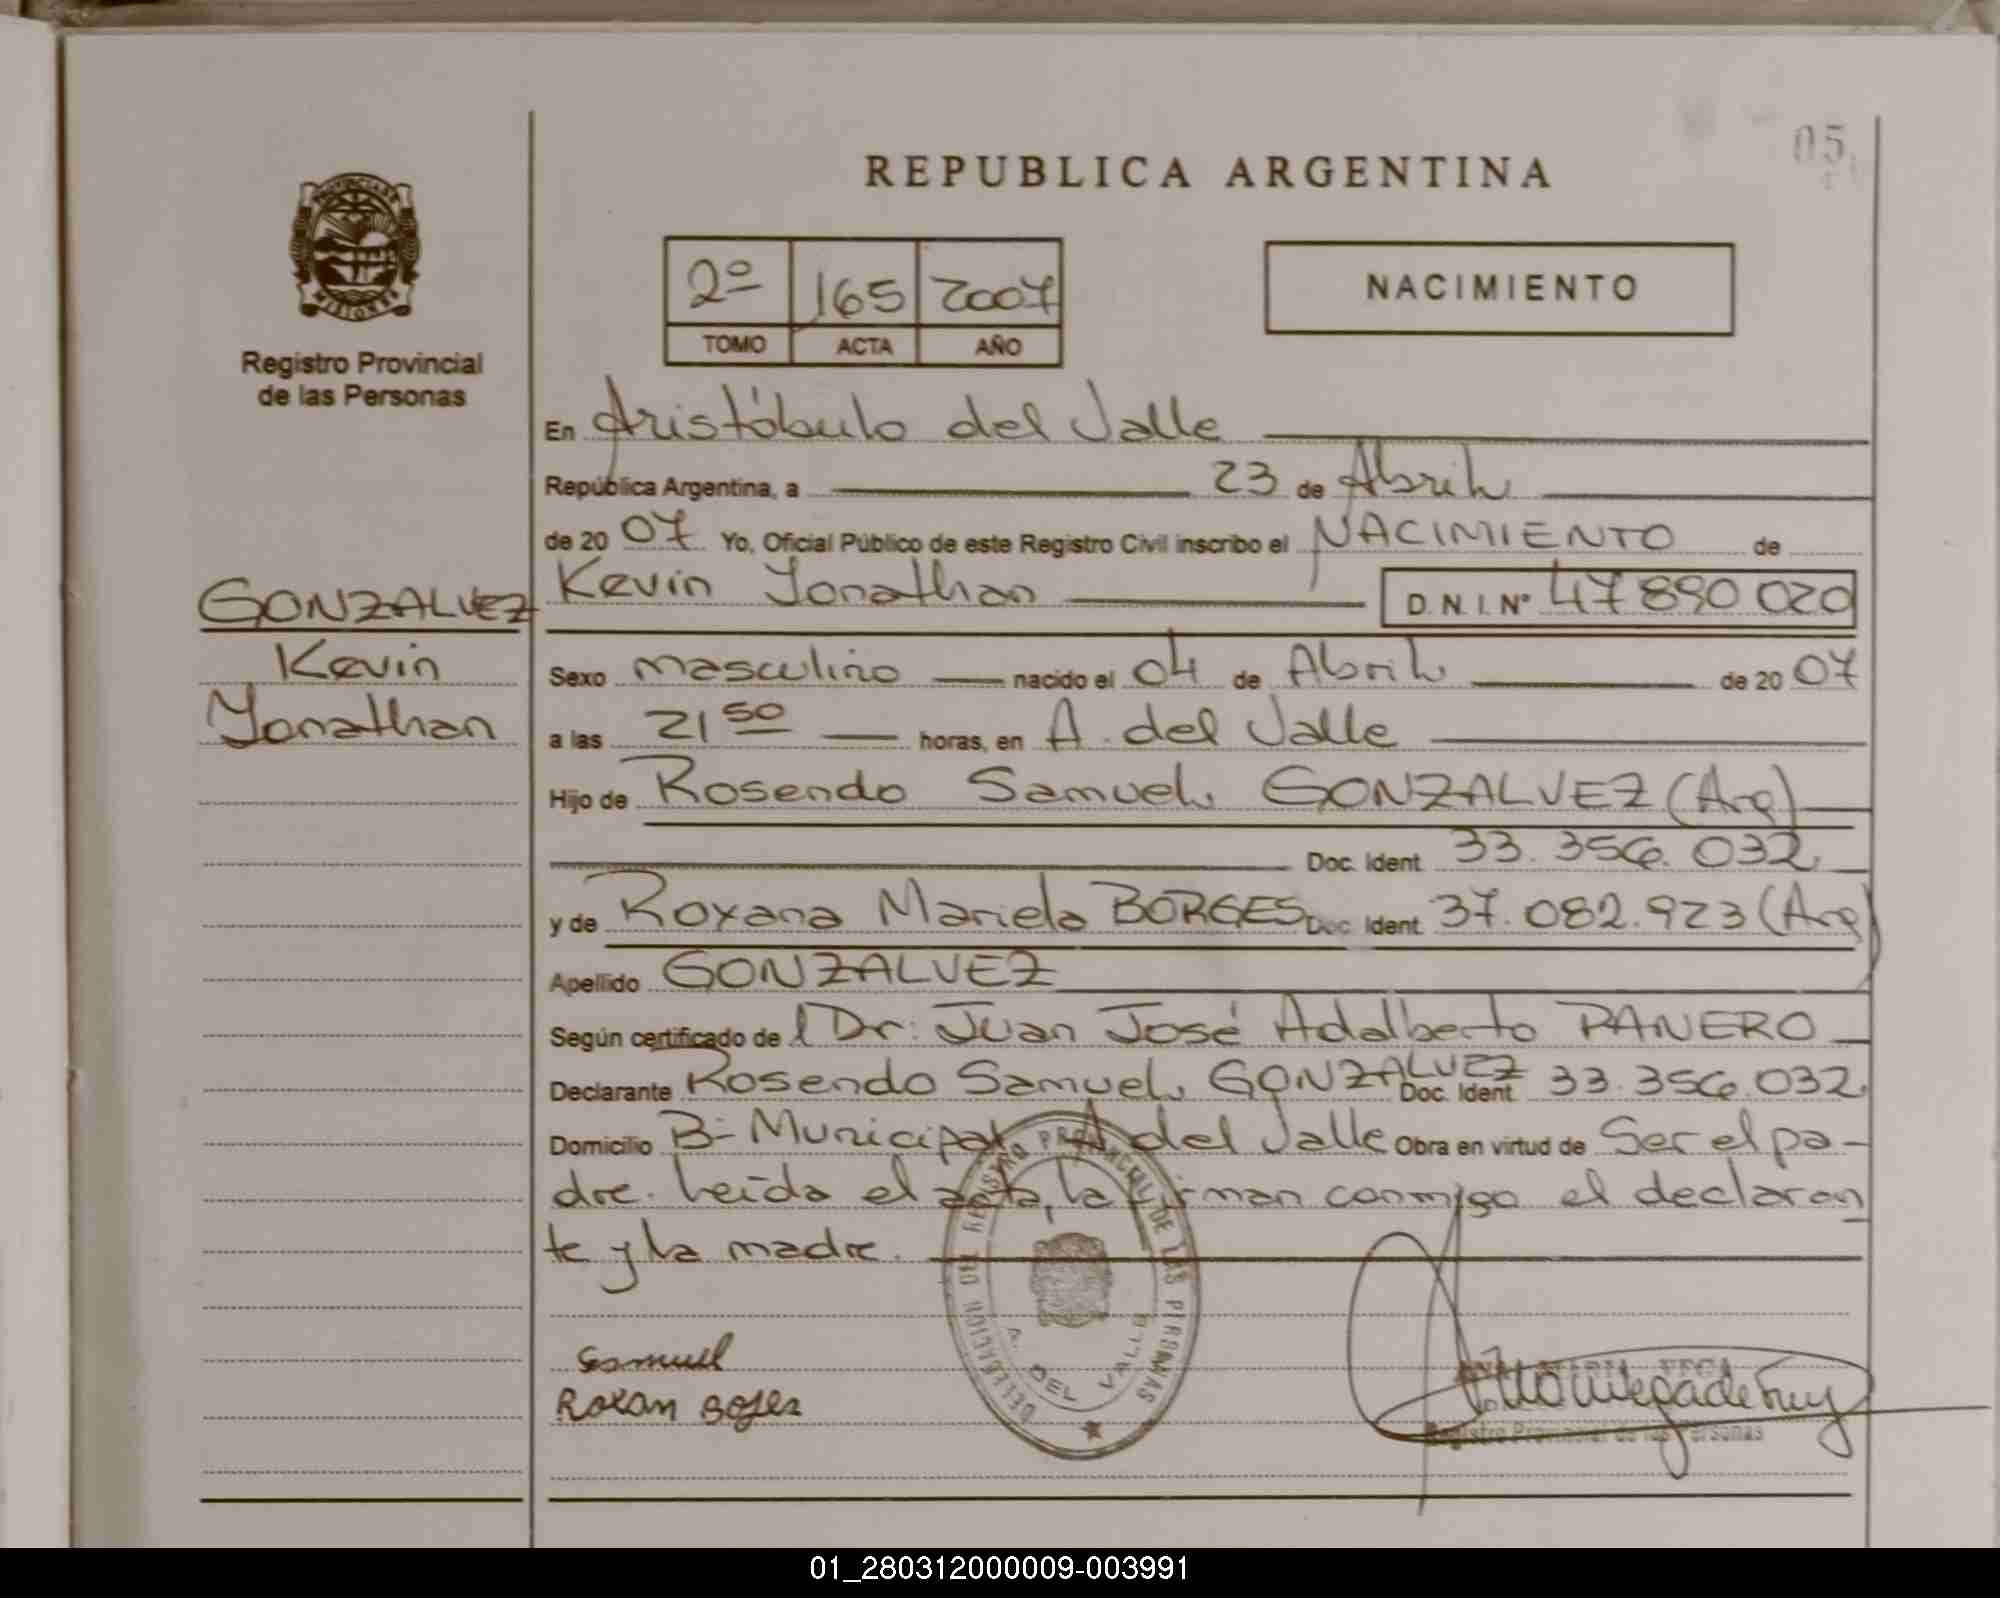 REPUBLICA ARGENTINA
05
PROVINCIA DE
MISIONES
Registro Provincial
de las Personas
2º 165 2007
TOMO ACTA AÑO
NACIMIENTO
En Aristóbulo del Valle
República Argentina, a 23 de Abril
de 20 07 Yo, Oficial Público de este Registro Civil inscribo el NACIMIENTO de
GONZALVEZ
Kevin
Yonathan
Kevin Yonathan D.N.I.Nº 47890020
Sexo masculino nacido el 04 de Abril de 20 07
a las 21 50 horas, en A. del Valle
Hijo de Rosendo Samuel GONZALVEZ (Arg)
Doc. Ident. 33.356.032
y de Roxana Mariela BORGES Doc. Ident. 37.082.923 (Arg)
Apellido GONZALVEZ
Según certificado de l Dr: Juan José Adalberto PANERO
Declarante Rosendo Samuel GONZALVEZ Doc. Ident. 33.356.032
Domicilio Bº Municipal A del Valle Obra en virtud de Ser el pa-
dre. Leída el acta, la firman conmigo el declaran
te y la madre.
DELEGACION DEL REGISTRO PROVINCIAL DE LAS PERSONAS
A. DEL VALLE
Samuel
Roxan
VEGA
Registro Provincial de las Personas
01_280312000009-003991